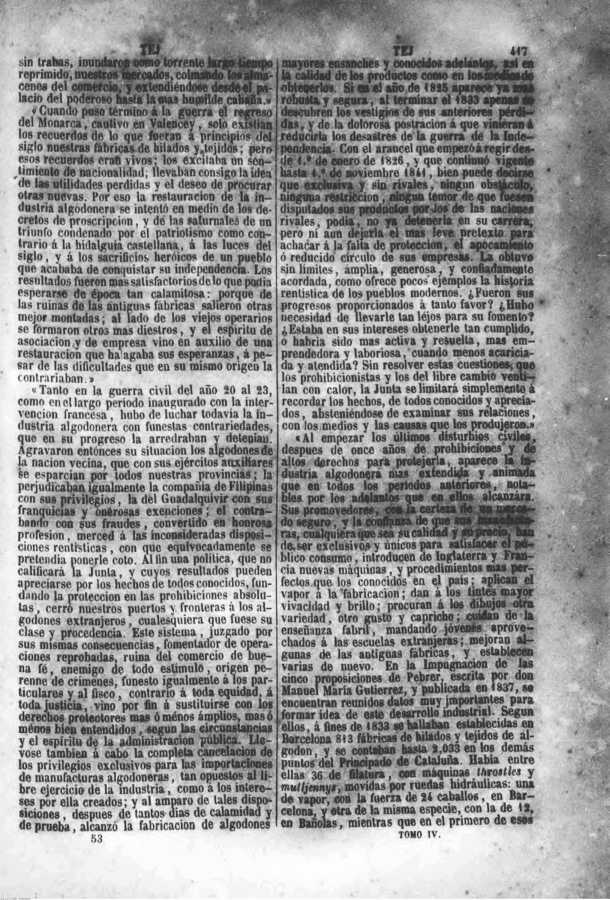 TEJ
TEJ
417
sin trabas, inundaron como torrente largo tiempo
reprimido, nuestros mercados, colmando los alma-
cenes del comercio, y extendiéndose desde el pa-
lacio del poderoso hasta la mas humilde cabaña.»
«Cuando puso término á la guerra el regreso
del Monarca, cautivo en Valencey, solo existian
los recuerdos de lo que fueran á principios del
siglo nuestras fábricas de hilados y tejidos; pero
esos recuerdos eran vivos; los excilaba un sen-
timiento de nacionalidad; llevaban consigo la idea
de las utilidades perdidas y el deseo de procurar
otras nuevas. Por eso la restauracion de la in-
dustria algodonera se intentó en medio de los de-
cretos de proscripcion, y de las saturnales de un
triunfo condenado por el patriotismo como con-
trario á la hidalguía castellana, á las luces del
siglo, y á los sacrificios heróicos de un pueblo
que acababa de conquistar su independencia. Los
resultados fueron mas satisfactorios de lo que podia
esperarse de época tan calamitosa: porque de
las ruinas de las antiguas fábricas salieron otras
mejor montadas; al lado de los viejos operarios
se formaron otros mas diestros, y el espíritu de
asociacion y de empresa vino en auxilio de una
restauracion que halagaba sus esperanzas, á pe-
sar de las dificultades que en su mismo orígen la
contrariaban.»
«Tanto en la guerra civil del año 20 al 23,
como en el largo período inaugurado con la inter-
vencion francesa, hubo de luchar todavia la in-
dustria algodonera con funestas contrariedades,
que en su progreso la arredraban y detenian.
Agravaron entónces su situacion los algodones de
la nacion vecina, que con sus ejércitos auxiliares
se esparcian por todos nuestros provincias; la
perjudicaban igualmente la compañia de Filipinas
con sus privilegios, la del Guadalquivir con sus
franquicias y onerosas exenciones; el contra-
bando con sus fraudes, convertido en honrosa
profesion, merced á las inconsideradas disposi-
ciones rentísticas, con que equivocadamente se
pretendia ponerle coto. Al fin una política, que no
calificará la Junta, y cuyos resultados pueden
apreciarse por los hechos de todos conocidos, fun-
dando la proteccion en las prohibiciones absolu-
tas, cerró nuestros puertos y fronteras á los al-
godones extranjeros, cualesquiera que fuese su
clase y procedencia. Este sistema, juzgado por
sus mismas consecuencias, fomentador de opera-
ciones reprobadas, ruina del comercio de bue-
na fé, enemigo de todo estímulo, orígen pe-
renne de crímenes, funesto igualmente á los par-
ticulares y al fisco, contrario á toda equidad, á
toda justicia, vino por fin á sustituirse con los
derechos protectores mas ó ménos ámplios, mas ó
ménos bien entendidos, segun las circunstancias
y el espíritu de la administracion pública. Lle-
vose tambien á cabo la completa cancelacion de
los privilegios exclusivos para las importaciones
de manufacturas algodoneras, tan opuestos al li-
bre ejercicio de la industria, como á los intere-
ses por ella creados; y al amparo de tales dispo-
siciones, despues de tantos dias de calamidad y
de prueba, alcanzó la fabricacion de algodones
53
mayores ensanches y conocidos adelantos, así en
la calidad de los productos como en los medios de
obtenerlos. Si en el año de 1825 aparece ya mas
robusta y segura, al terminar el 1833 apenas se
descubren los vestigios de sus anteriores pérdi-
das, y de la dolorosa postracion á que vinieran á
reducirla los desastres de la guerra de la Inde-
pendencia. Con el arancel que empezó á regir des-
de 1.º de enero de 1826, y que continuó vigente
hasta 1.º de noviembre 1841, bien puede decirse
que exclusiva y sin rivales, ningun obstáculo,
ninguna restriccion, ningun temor de que fuesen
disputados sus productos por los de las naciones
rivales, podia, no ya detenerla en su carrera,
pero ni aun dejarla el mas leve pretexto para
achacar á la falta de proteccion, el apocamiento
ó reducido círculo de sus empresas. La obtuvo
sin límites, amplia, generosa, y confiadamente
acordada, como ofrece pocos ejemplos la historia
rentística de los pueblos modernos. ¿Fueron sus
progresos proporcionados á tanto favor? ¿Hubo
necesidad de llevarle tan léjos para su fomento?
¿Estaba en sus intereses obtenerle tan cumplido,
ó habria sido mas activa y resulta, mas em-
prendedora y laboriosa, cuando menos acaricia-
da y atendida? Sin resolver estas cuestiones, que
los prohibicionistas y los del libre cambio venti-
lan con calor, la Junta se limitará simplemente á
recordar los hechos, de todos conocidos y aprecia-
dos, absteniéndose de examinar sus relaciones,
con los medios y las causas que los produjeron.»
«Al empezar los últimos disturbios civiles,
despues de once años de prohibiciones y de
altos derechos para protejerla, aparece la in-
dustria algodonera mas extendida y animada
que en todos los períodos anteriores, nota-
bles por los adelantos que en ellos alcanzára.
Sus promovedores, con la certeza de un merca-
do seguro, y la confianza de que sus
ras, cualquiera que sea su calidad y su precio, han
de ser exclusivos y únicos para satisfacer el pú-
blico consumo, introducen de Inglaterra y Fran-
cia nuevas máquinas, y procedimientos mas per-
fectos que los conocidos en el pais; aplican el
vapor á la fabricacion; dan á los tintes mayor
vivacidad y brillo; procuran á los dibujos otra
variedad, otro gusto y capricho; cuidan de la
enseñanza fabril, mandando jóvenes aprove-
chados á las escuelas extranjeras; mejoran al-
gunas de las antiguas fábricas, y establecen
varias de nuevo. En la Impugnacion de las
cinco proposiciones de Pebrer, escrita por don
Manuel María Gutierrez, y publicada en 1837, se
encuentran reunidos datos muy importantes para
formar idea de este desarrollo industrial. Segun
ellos, á fines de 1833 se hallaban establecidas en
Barcelona 813 fábricas de hilados y tejidos de al-
godon, y se contaban hasta 2,033 en los demás
puntos del Principado de Cataluña. Habia entre
ellas 36 de filatura, con máquinas throstles y
mulljennys, movidas por ruedas hidráulicas: una
de vapor, con la fuerza de 24 caballos, en Bar-
celona, y otra de la misma especie, con la de 12,
en Bañolas, mientras que en el primero de esos
TOMO IV.